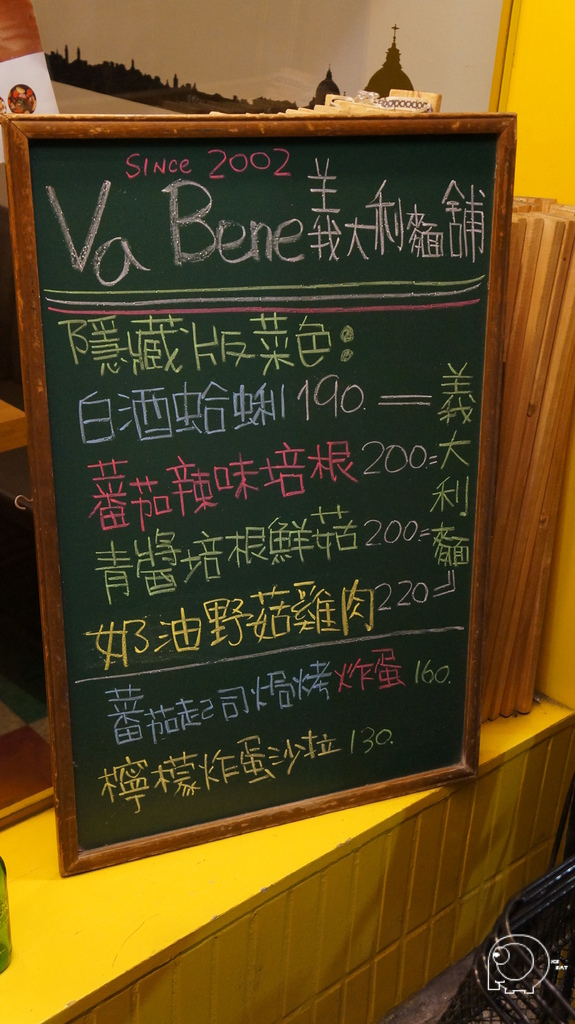 SINCE 2002
Va Bene 義大利麵舖
隱藏版菜色:
白酒蛤蜊 190.
蕃茄辣味培根 200.
青醬培根鮮菇 200.
奶油野菇雞肉 220
義大利麵
蕃茄起司焗烤炸蛋 160.
檸檬炸蛋沙拉 130.